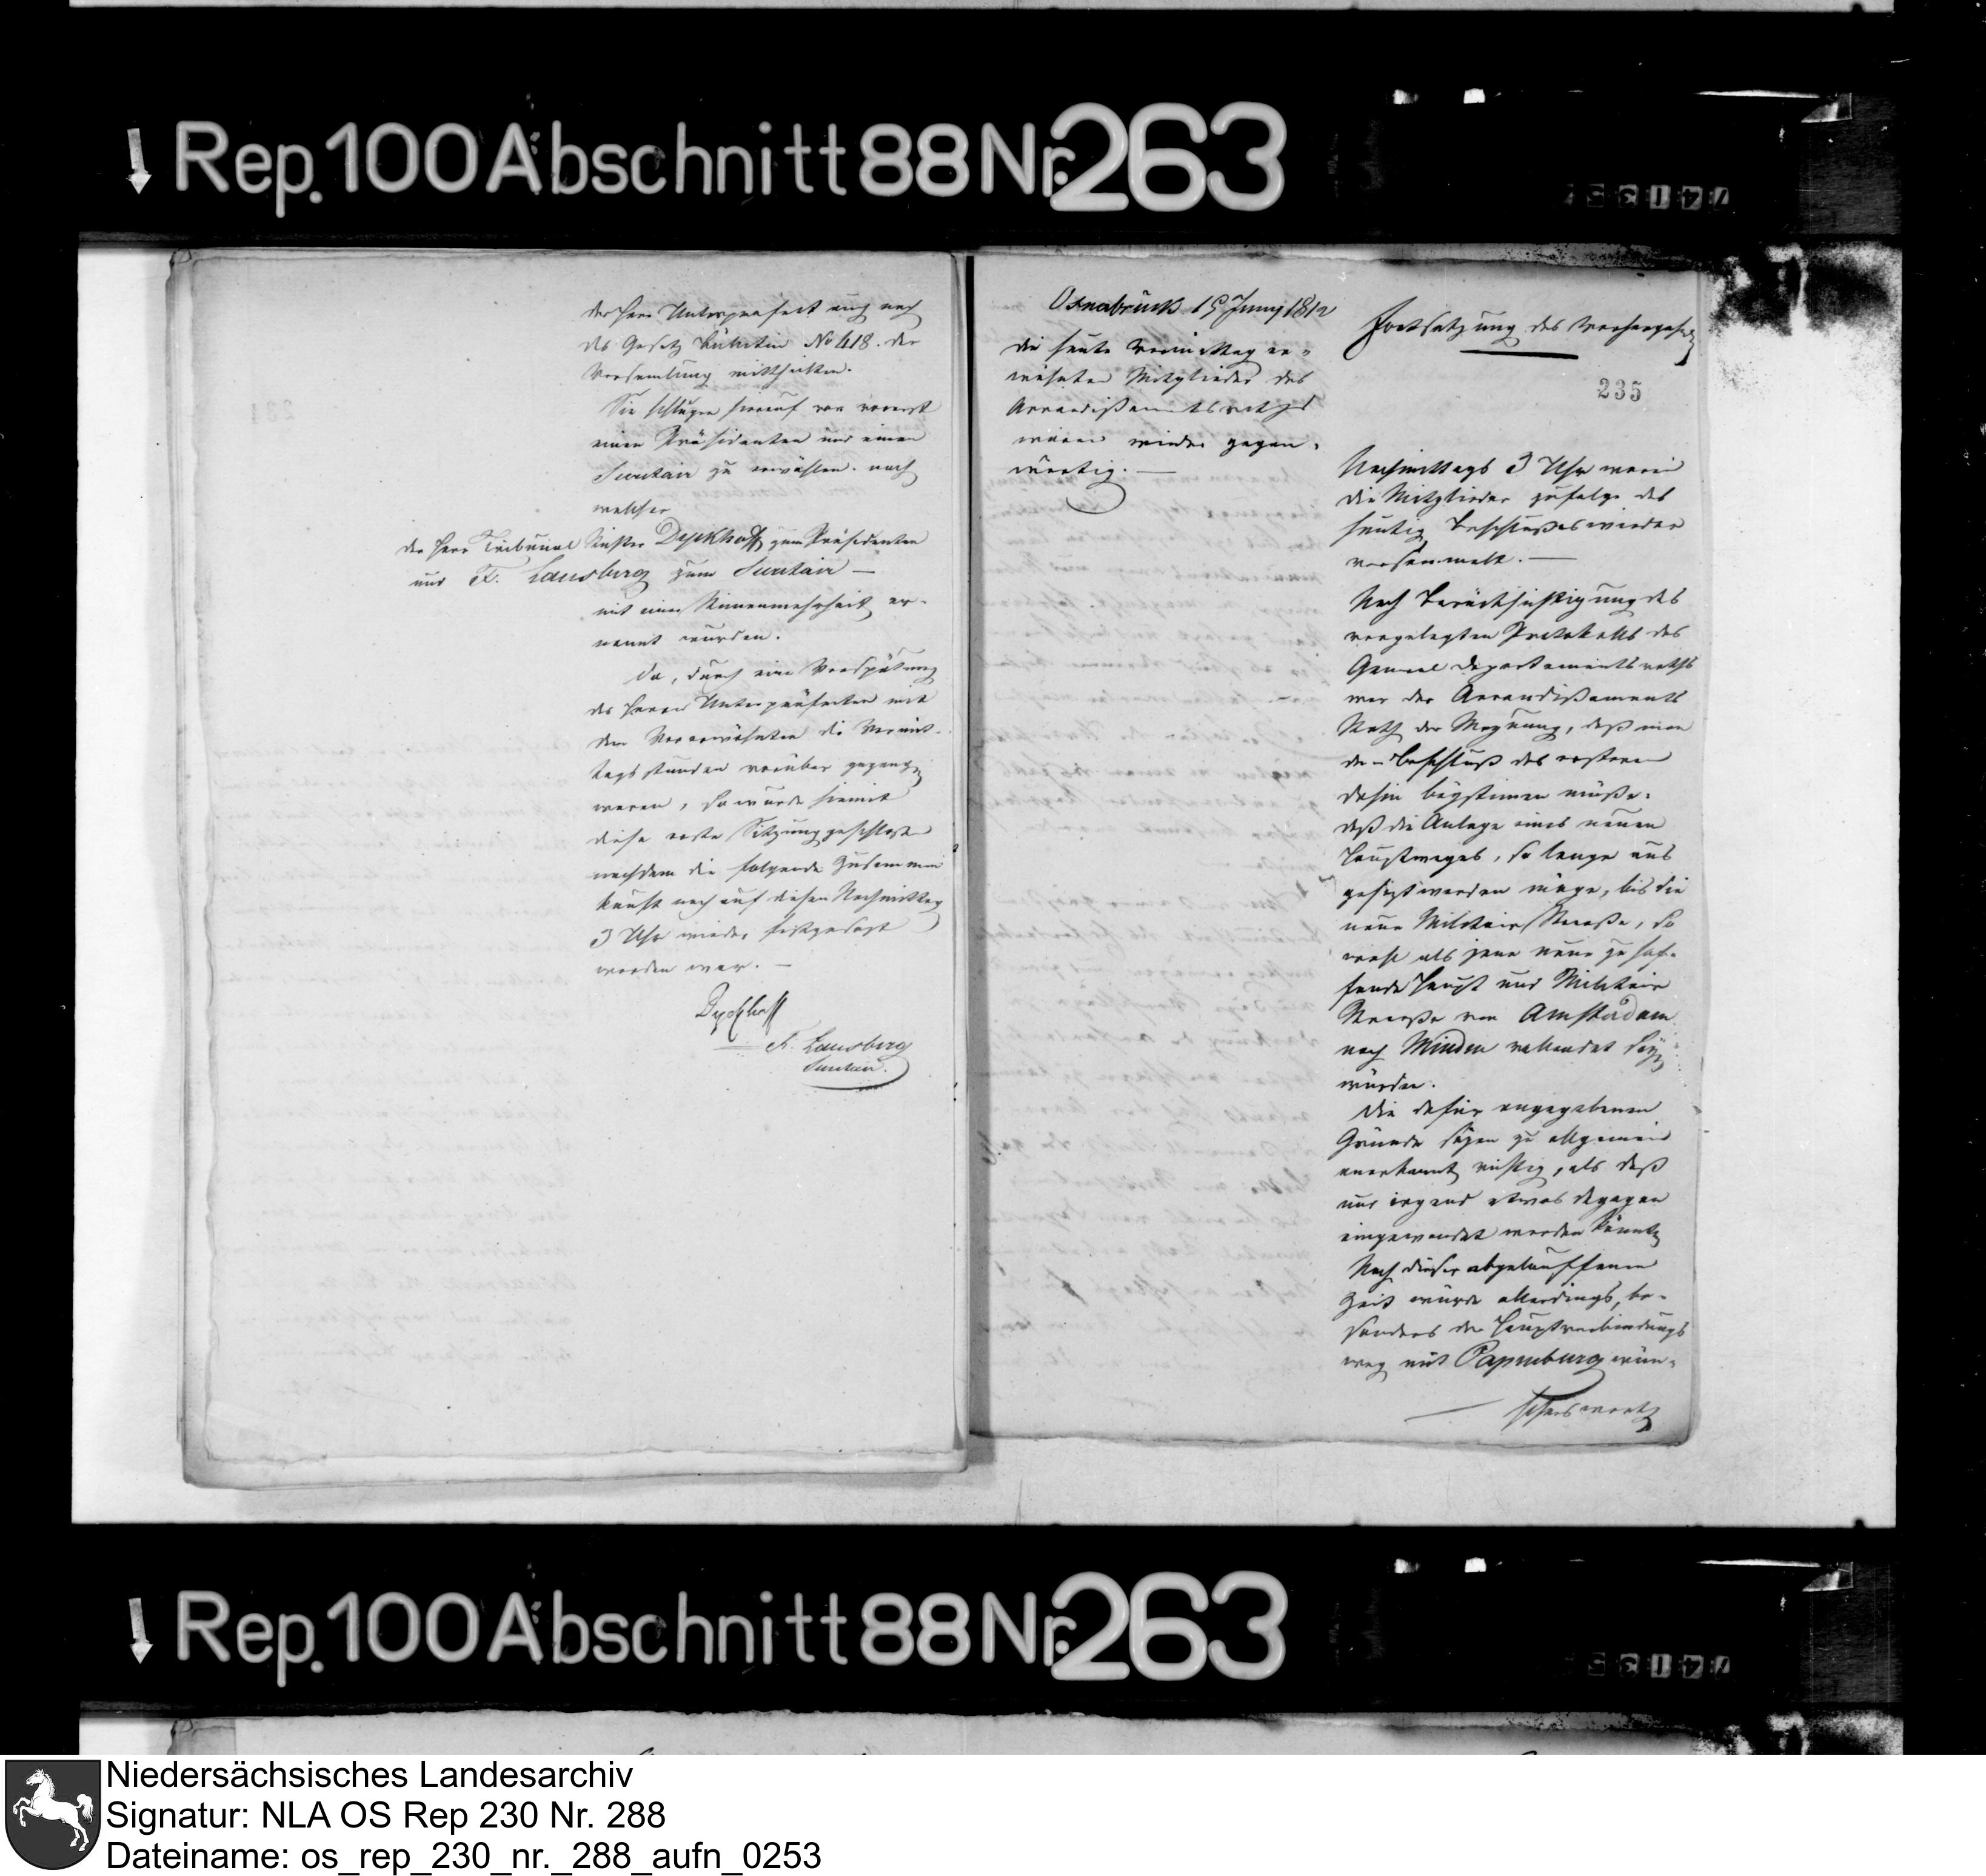 Rep. 100 Abschnitt 88 Nr. 263
der Herr Unterpraefect auch noch
des Gesetz Bulletin No 418. der
Versamlung mittheilten.
Sie schlugen hierauf vor vorerst
einen Präsidenten und einen
Secretair zu erwählen. nach
welcher
der Herr Tribunal Richter Dyckhoff zum Präsidenten
und F. Lansberg zum Secretair —
mit einer Stimmenmehrheit er-
nannt wurden.
Da, durch eine Verspätung
des Herrn Unterpräfecten mit
dem Vorerwähnten die Vormit-
tags stunden vorüber gegangen
waren, so wurde hiemit
diese erste Sitzung geschlossen
nachdem die folgende Zusammen
kunft noch auf diesen Nachmittag
3 Uhr wieder festgesetzt
worden war. —
Dyckhoff
F. Lansberg
Secretair.
Osnabrück 15 Juny 1812
die heute Vormittag er-
wähnten Mitglieder des
Arrondissaments raths
waren wieder gegen-
wärtig. —
Fortsetzung des Vorhergehend
235
Nachmittags 3 Uhr waren
die Mitglieder zufolge des
heutig Beschlusses wieder
versammelt. —
Nach Berücksichtigung des
vorgelegten Protokolls des
General Departements raths
war der Arrondissaments
Rath der Meynung, daß man
dem Beschluß des ersteren
dahin beystimen müße.
daß die Anlage eines neuen
Hauptweges, so lange aus
gesezt werden möge, bis die
neue Militair Strasse, so
wohl als jene neue zu schaf-
fende Haupt und Militair
Strasse von Amsterdam
nach Minden vollendet seyn
würde.
Die dafür angegebenen
Gründe seyen zu allgemein
anerkannt richtig, als daß
nur irgend etwas dagegen
eingewendet werden könnte
Nach dieser abgelauffenen
Zeit würde allerdings, be-
sonders der Hauptverbindungs
weg mit Papenburg wün-
schenswerth
Rep. 100 Abschnitt 88 Nr. 263
Niedersächsisches Landesarchiv
Signatur: NLA OS Rep 230 Nr. 288
Dateiname: os_rep_230_nr._288_aufn_0253